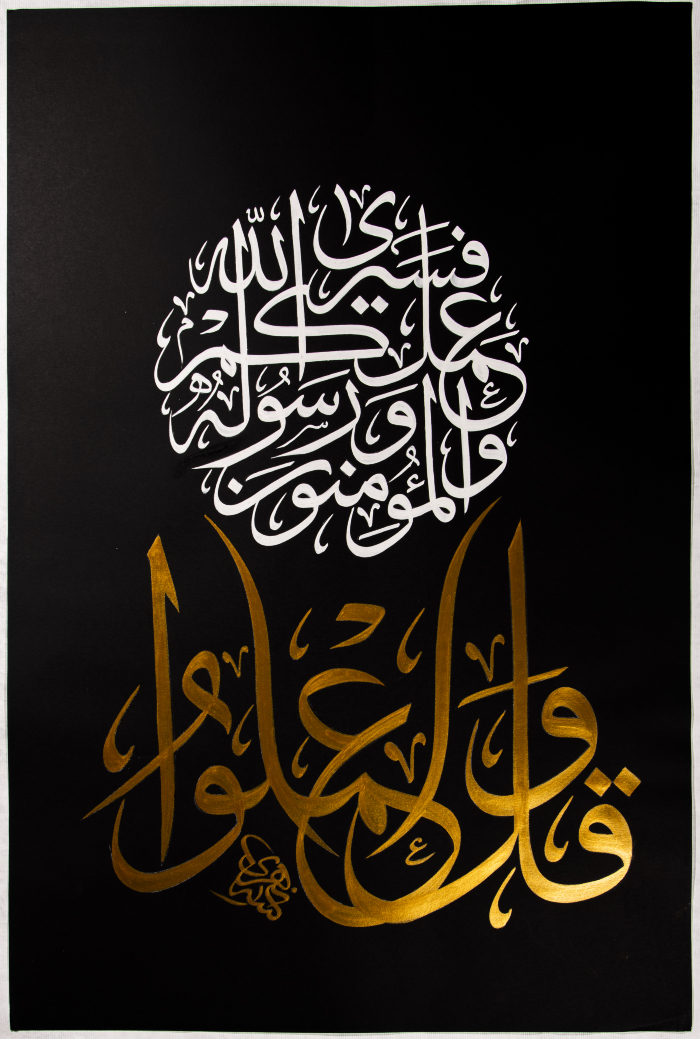 وقل اعملوا
فسيرى الله
عملكم
ورسوله
والمؤمنون